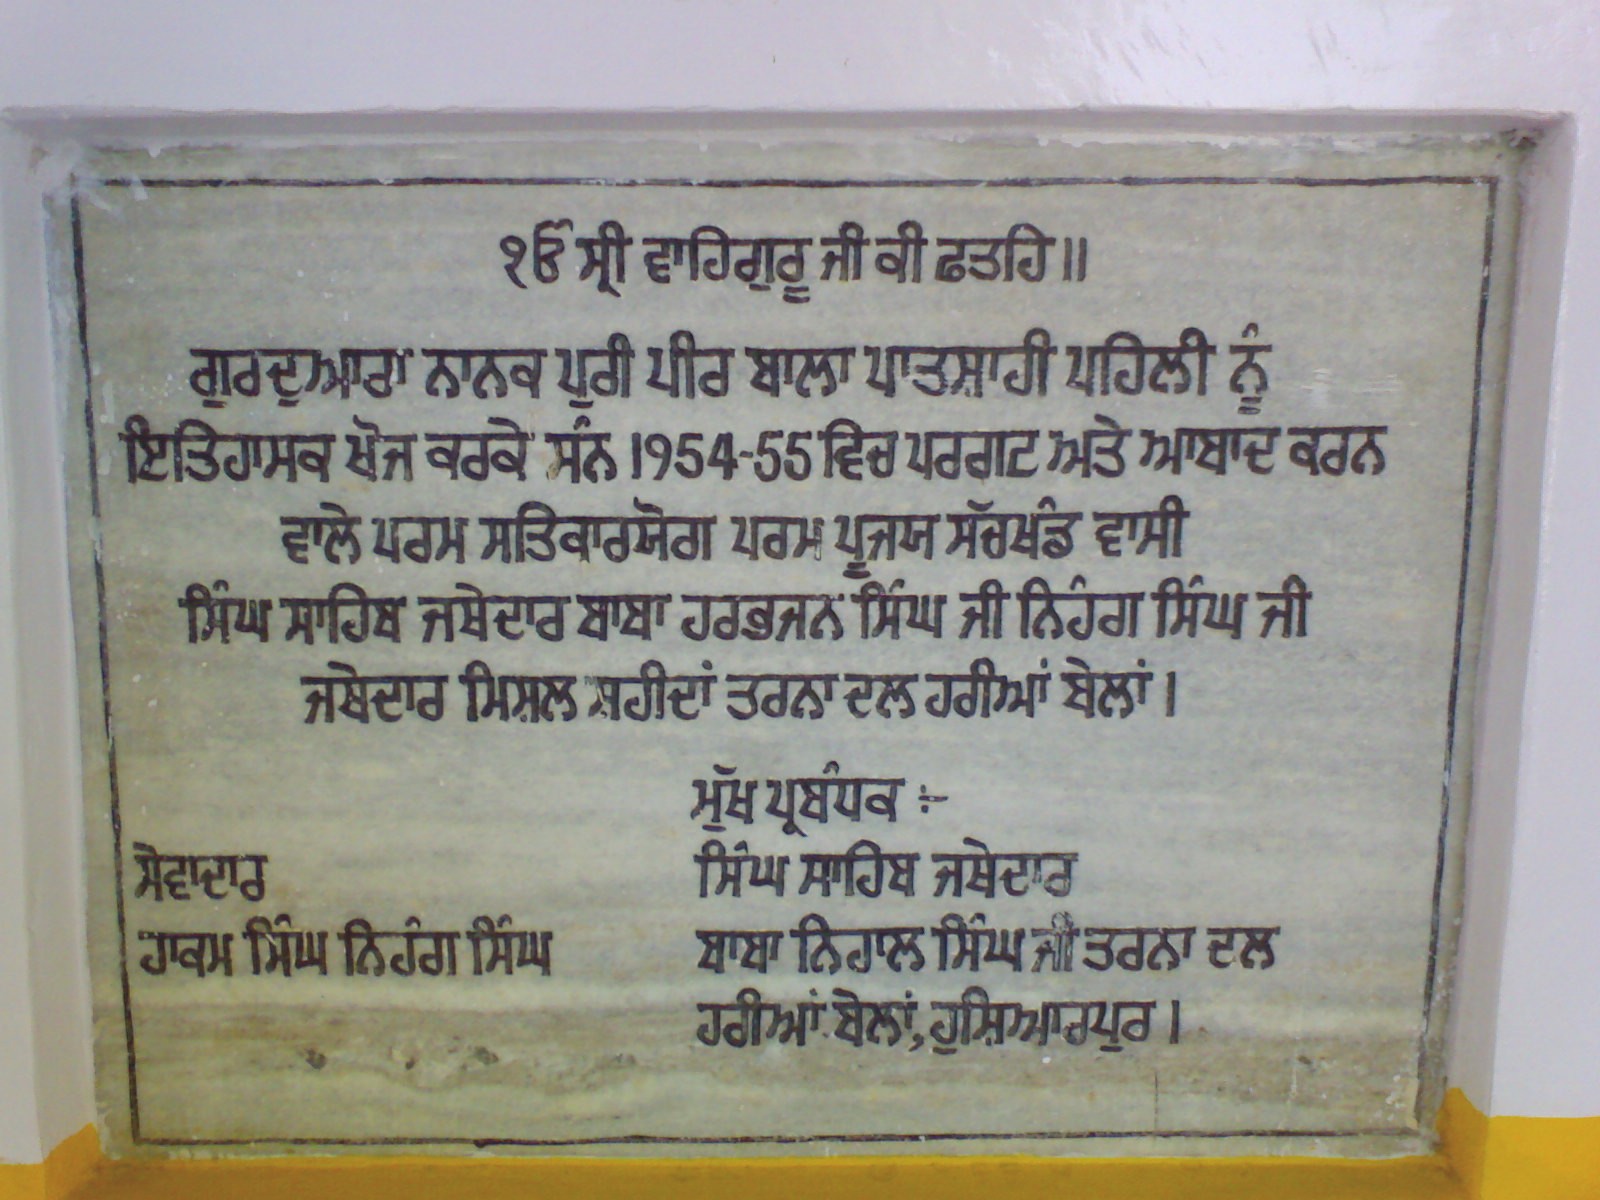 ੴ ਸ੍ਰੀ ਵਾਹਿਗੁਰੂ ਜੀ ਕੀ ਫਤਹਿ॥
ਗੁਰਦੁਆਰਾ ਨਾਨਕ ਪੁਰੀ ਪੀਰ ਬਾਲਾ ਪਾਤਸ਼ਾਹੀ ਪਹਿਲੀ ਨੂੰ
ਇਤਿਹਾਸਕ ਖੋਜ ਕਰਕੇ ਸੰਨ 1954-55 ਵਿਚ ਪਰਗਟ ਅਤੇ ਆਬਾਦ ਕਰਨ
ਵਾਲੇ ਪਰਮ ਸਤਿਕਾਰਯੋਗ ਪਰਮ ਪੂਜਯ ਸੱਚਖੰਡ ਵਾਸੀ
ਸਿੰਘ ਸਾਹਿਬ ਜਥੇਦਾਰ ਬਾਬਾ ਹਰਭਜਨ ਸਿੰਘ ਜੀ ਨਿਹੰਗ ਸਿੰਘ ਜੀ
ਜਥੇਦਾਰ ਮਿਸ਼ਲ ਸ਼ਹੀਦਾਂ ਤਰਨਾ ਦਲ ਹਰੀਆਂ ਬੇਲਾਂ।
ਮੁੱਖ ਪ੍ਰਬੰਧਕ :-
ਸਿੰਘ ਸਾਹਿਬ ਜਥੇਦਾਰ
ਬਾਬਾ ਨਿਹਾਲ ਸਿੰਘ ਜੀ ਤਰਨਾ ਦਲ
ਹਰੀਆਂ ਬੇਲਾਂ, ਹੁਸ਼ਿਆਰਪੁਰ।
ਸੇਵਾਦਾਰ
ਹਾਕਮ ਸਿੰਘ ਨਿਹੰਗ ਸਿੰਘ